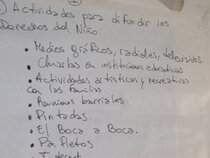 1) Actividades para difundir los
Derechos del Niño:
• Medios gráficos, radiales, televisivos.
• Charlas en instituciones educativas.
• Actividades artísticas y recreativas
con las familias.
• Reuniones barriales.
• Pintadas.
• El Boca a Boca.
• Panfletos
• Internet